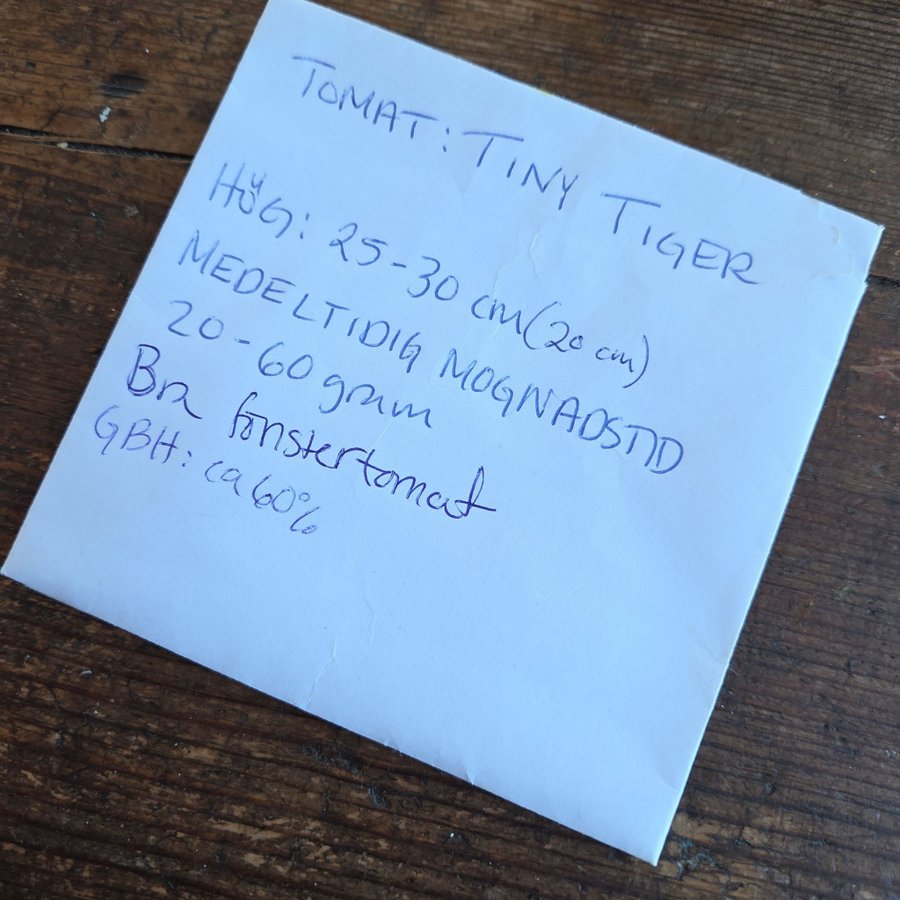 TOMAT: TINY TIGER
HÖG: 25-30 cm (20 cm)
MEDELTIDIG MOGNADSTID
20-60 gram
Bra fönstertomat
GBH: ca 60%